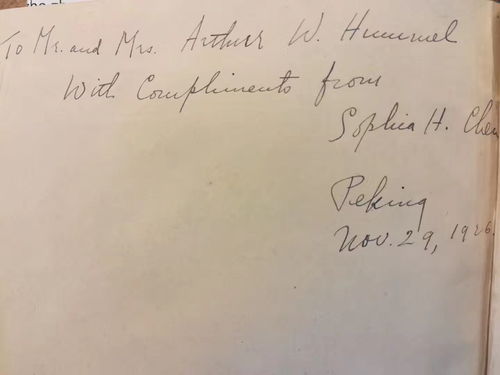 To Mr. and Mrs. Arthur W. Hummel
With Compliments from
Sophia H. Chen
Peking
Nov. 29, 1926.